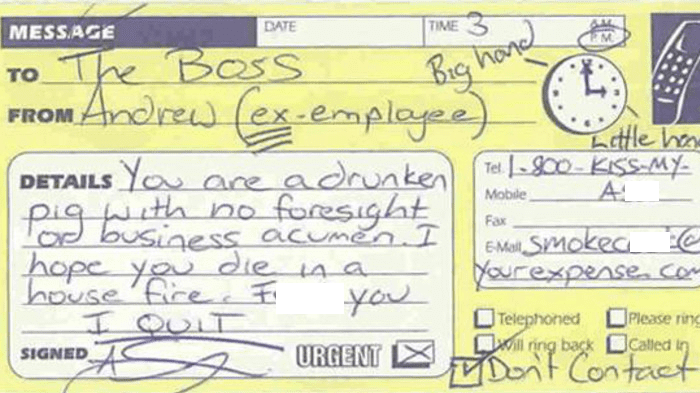 MESSAGE DATE TIME 3 A.M.
P.M.
TO The Boss Big hand
FROM Andrew (ex-employee)
Little hand
DETAILS You are a drunken
pig with no foresight
or business acumen. I
hope you die in a
house fire. F you
I QUIT
SIGNED AS URGENT
Tel. 1-800-KISS-MY-
Mobile A
Fax
E-Mail smokec @
yourexpense.com
Telephoned Please ring
Will ring back Called In
Don't Contact